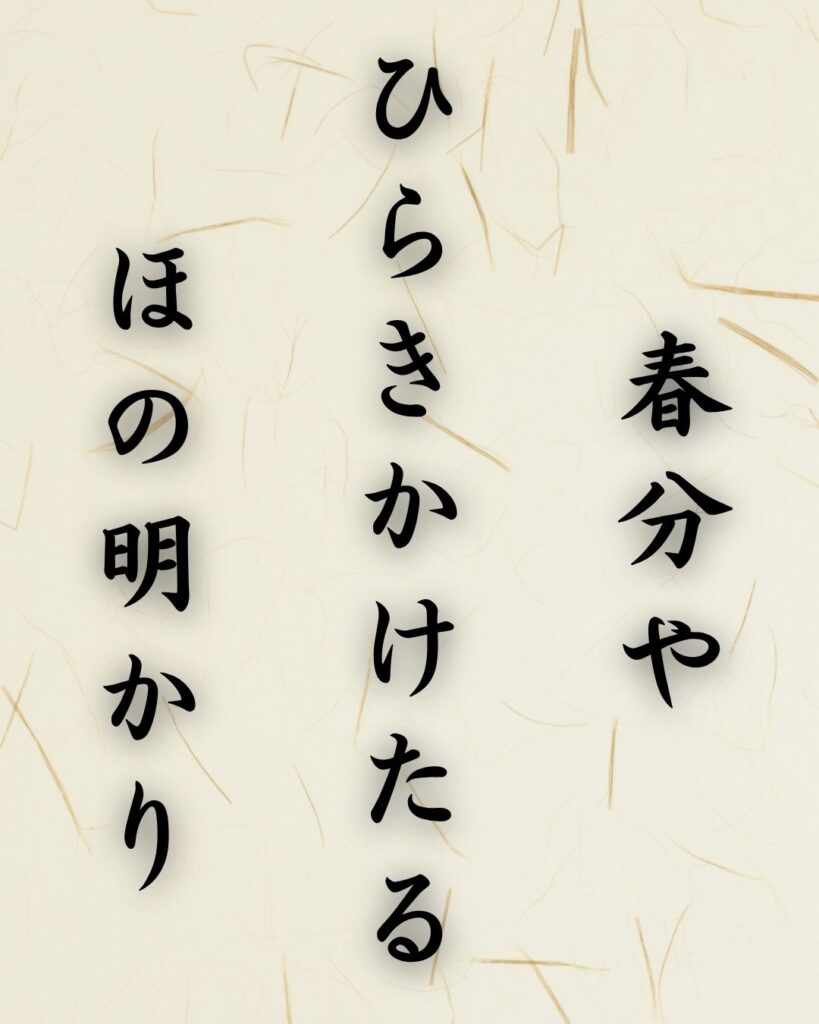 春分や
ひらきかけたる
ほの明かり